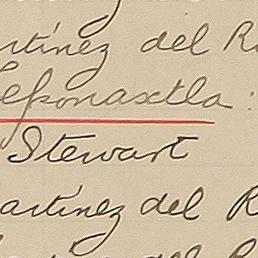 artínez del R
Teponaxtla:
Stewart
artínez del R